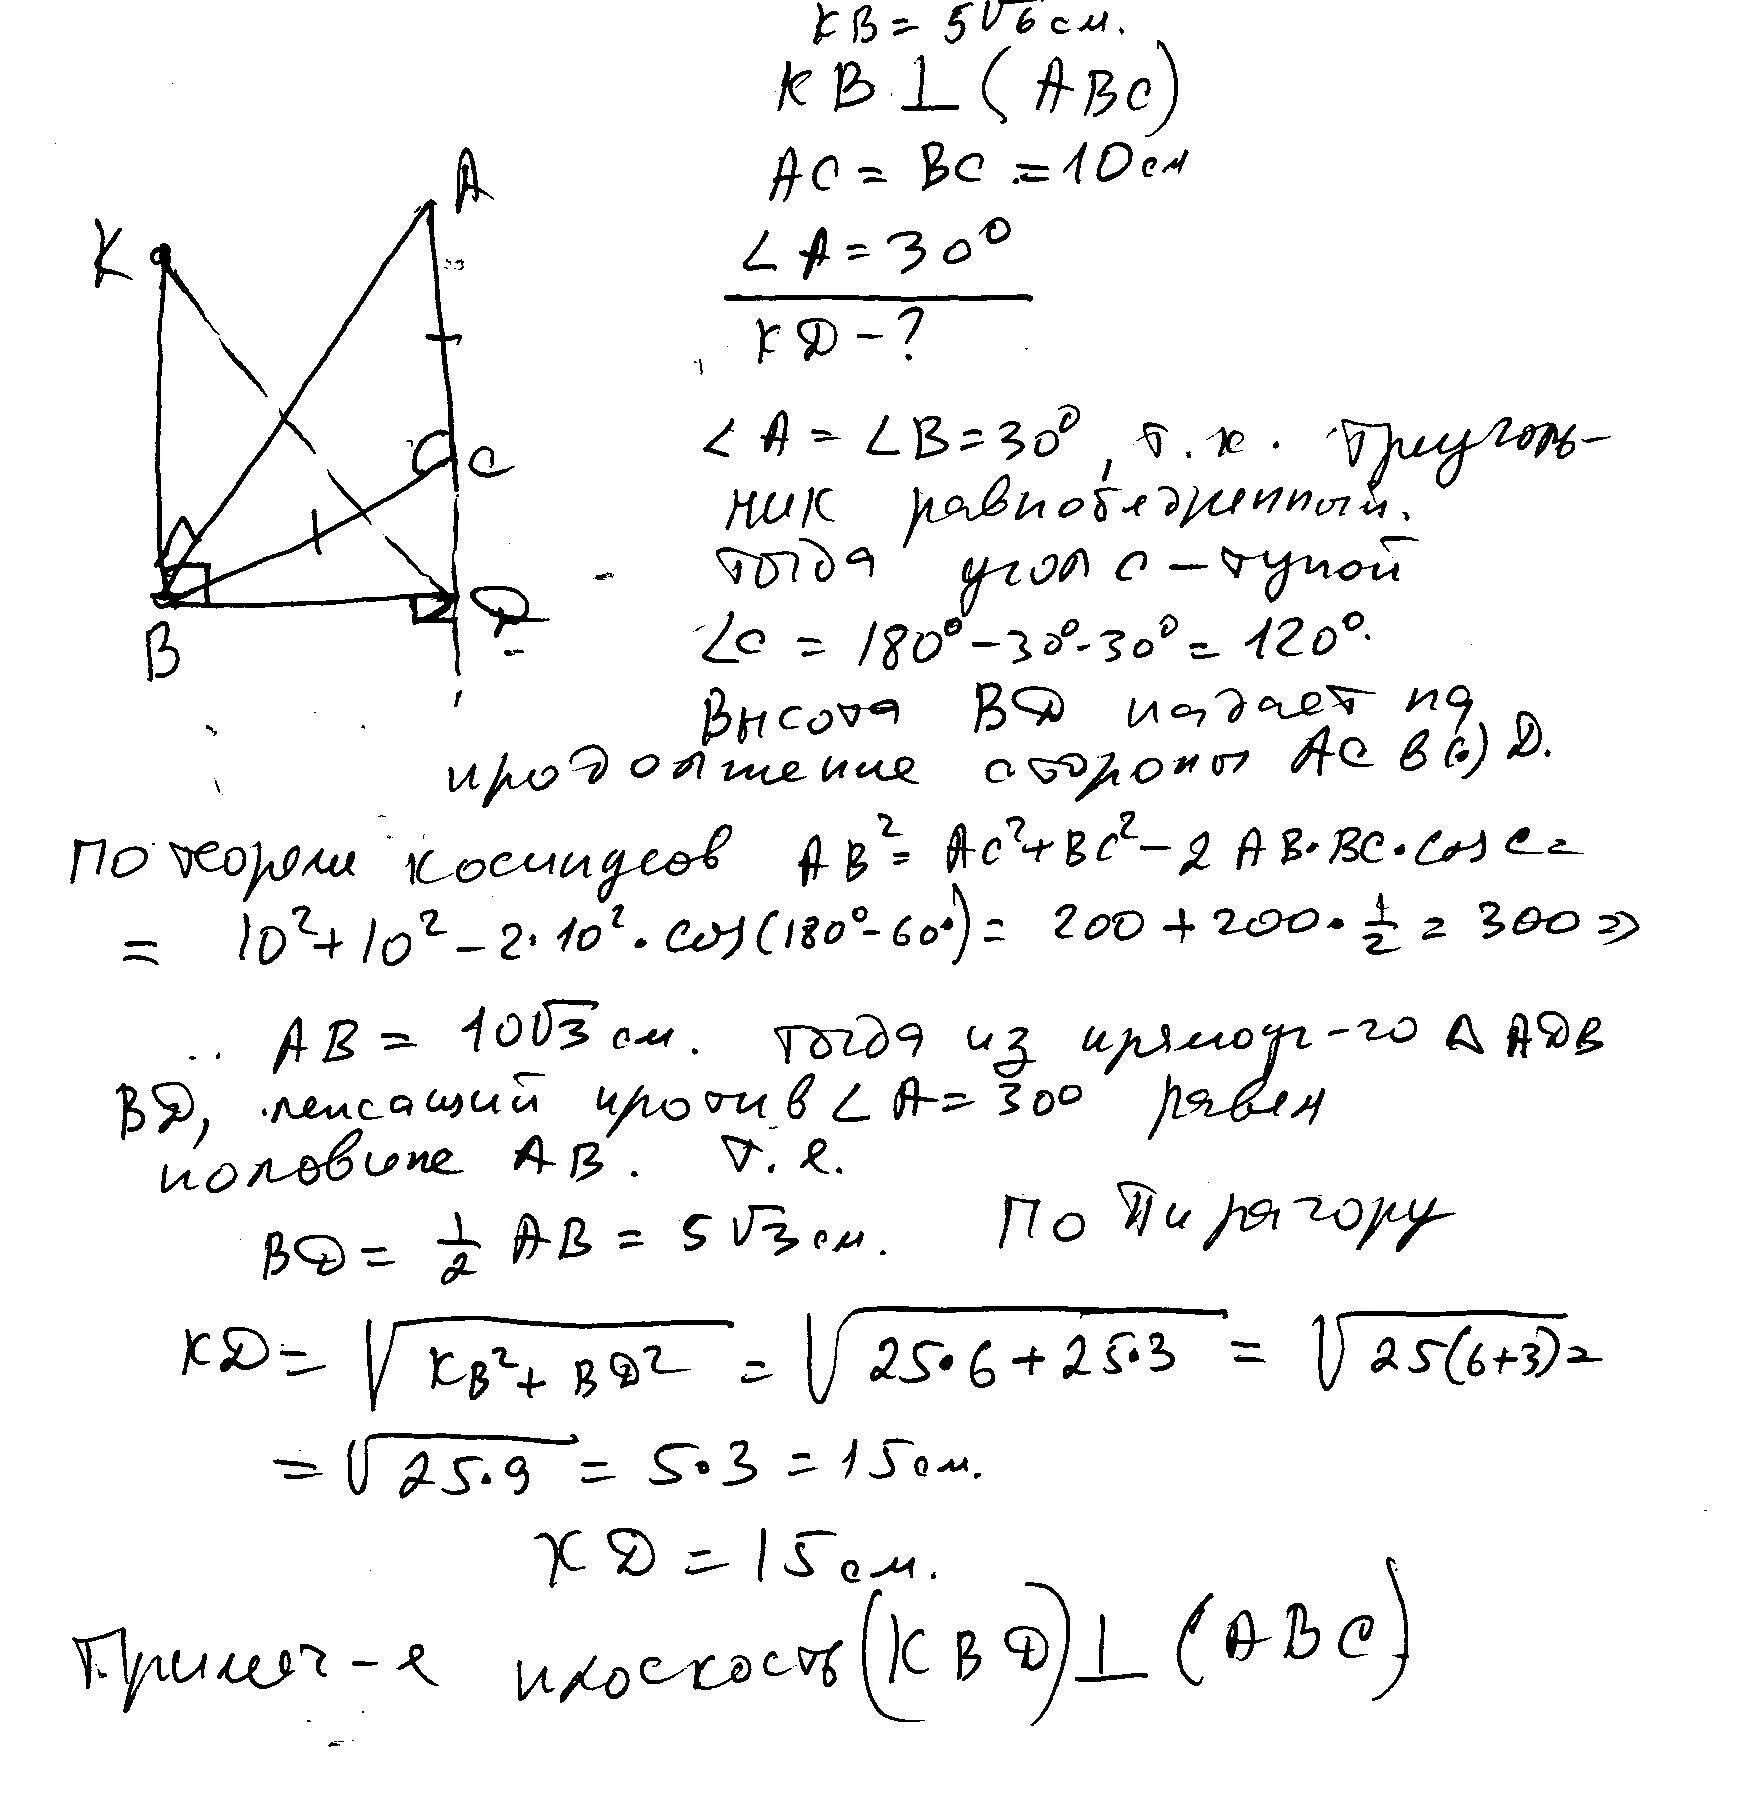 KB = 5√6 см.
KB ⊥ (ABC)
AC = BC = 10 см
∠A = 30°
KD - ?
K
A
C
B
D
∠A = ∠B = 30°, т.к. треуголь-
ник равнобедренный.
тогда угол C – тупой
∠C = 180° - 30° - 30° = 120°.
Высота BD падает на
продолжение стороны AC в (·) D.
По теореме косинусов AB² = AC² + BC² - 2 AB · BC · cos C =
= 10² + 10² - 2 · 10² · cos(180° - 60°) = 200 + 200 · 1/2 = 300 =>
AB = 10√3 см. тогда из прямоуг-го △ ADB
BD, лежащий против ∠A = 30° равен
половине AB. т.е.
BD = 1/2 AB = 5√3 см. По Пифагору
KD = √(KB² + BD²) = √(25·6 + 25·3) = √(25(6+3)) =
= √(25·9) = 5·3 = 15 см.
KD = 15 см.
Примеч-е плоскость (KBD) ⊥ (ABC)